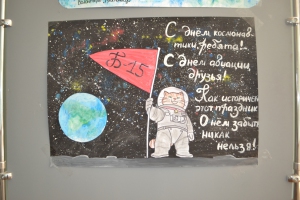 С днём космонав-
тики, ребята!
С днём авиации,
друзья!
Б-15
Как историчен
этот праздник
О нём забыть
никак
нельзя!